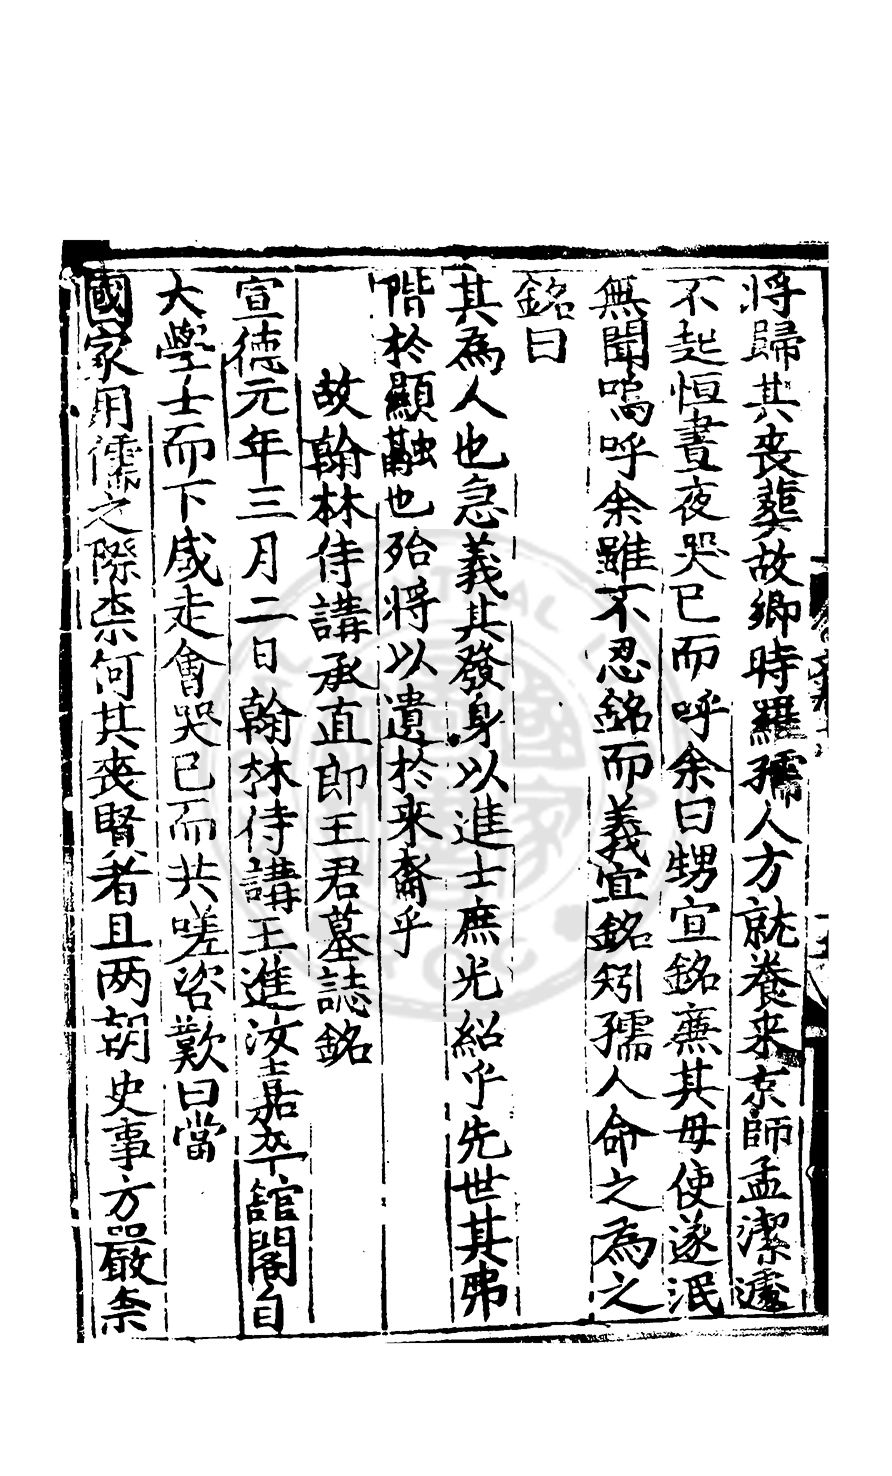 將歸其喪葬故鄉時羅孺人方就養来京師孟潔遽
不起恒晝夜哭已而呼余曰甥宣銘薦其母使遂泯
無聞嗚呼余雖不忍銘而義宜銘矧孺人命之為之
銘曰
其為人也急義其發身以進士庶光紹乎先世其弗
階於顯融也殆將以遺於来裔乎
故翰林侍講承直郎王君墓誌銘
宣德元年三月二日翰林侍講王進汝嘉卒舘閣自
大學士而下咸走會哭已而共嗟咨歎曰當
國家用儒之際柰何其喪賢者且两朝史事方嚴柰